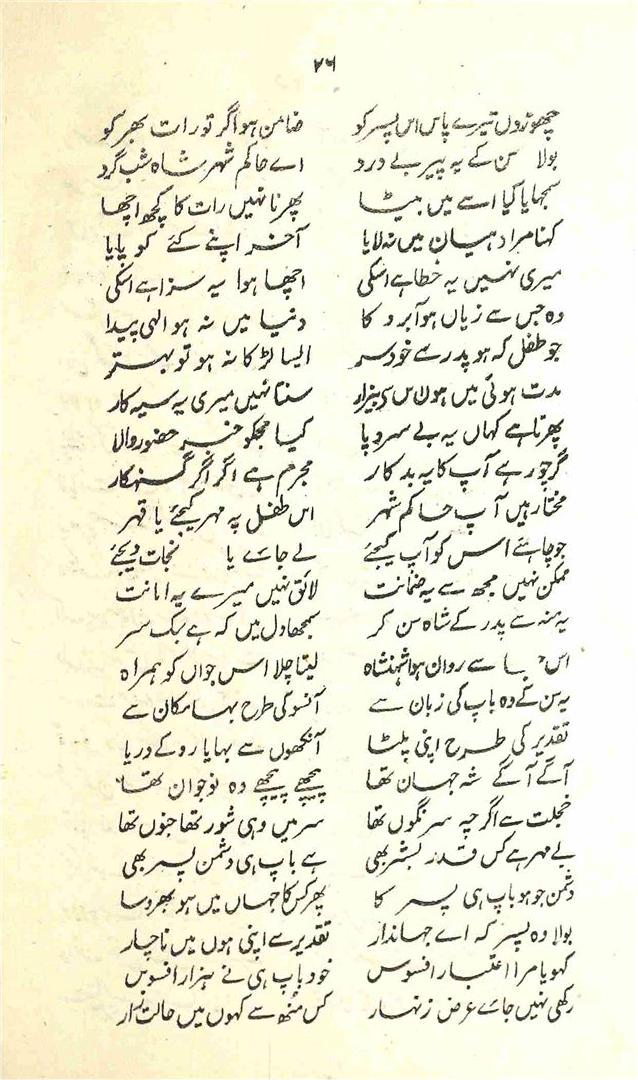 ۲۶
چھوڑدوں تیرے پاس اس پسر کو ضامن ہو اگر تو رات بھر کو
بولا سن کے یہ پیر بے درد اے حاکم شہر شاہ شب گرد
سمجھایا کیا اسے میں بیٹا پھرنا نہیں رات کا کچھ اچھا
کہنا مرا دھیان میں نہ لایا آخر اپنے کئے کو پایا
میری نہیں یہ خطا ہے اسکی اچھا ہوا یہ سزا ہے اسکی
وہ جس سے زیاں ہو آبرو کا دنیا میں نہ ہو الہی پیدا
جو طفل کہ ہو پدر سے خود سر ایسا لڑکا نہ ہو تو بہتر
مدت ہوئی میں ہوں اس سی بیزار سنتا نہیں میری یہ سیہ کار
پھرتا ہے کہاں یہ بے سروپا کیا مجکو خبر حضور والا
گر چور ہے آپ کا یہ بدکار مجرم ہے اگر اگر گنہگار
مختار ہیں آپ حاکم شہر اس طفل پہ مہر کیجئے یا قہر
جو چاہئے اس کو آپ کیجئے لے جائے یا نجات دیجئے
ممکن نہیں مجھ سے یہ ضمانت لائق نہیں میرے یہ امانت
یہ منہ سے پدر کے شاہ سن کر سمجھا دل میں کہ ہے سبک سر
اس سے روان ہوا شہنشاہ لیتا چلا اس جواں کو ہمراہ
یہ سن کے وہ باپ کی زبان سے آنسو کی طرح بہا مکان سے
تقدیر کی طرح اپنی پلٹا آنکھوں سے بہایا رو کے دریا
آگے آگے شہ جہان تھا پیچھے پیچھے وہ نوجوان تھا
خجلت سے اگرچہ سرنگوں تھا سر میں وہی شور تھا جنوں تھا
بے مہر ہے کس قدر بشر بھی ہے باپ ہی دشمن پسر بھی
دشمن جو ہو باپ ہی پسر کا پھر کس کا جہاں میں ہو بھروسا
بولا وہ پسر کہ اے جہاندار تقدیر سے اپنی ہوں میں ناچار
کھویا مرا اعتبار افسوس خود باپ ہی نے ہزار افسوس
رکھی نہیں جائے عرض زنہار کس منھ سے کہوں میں حالت زار